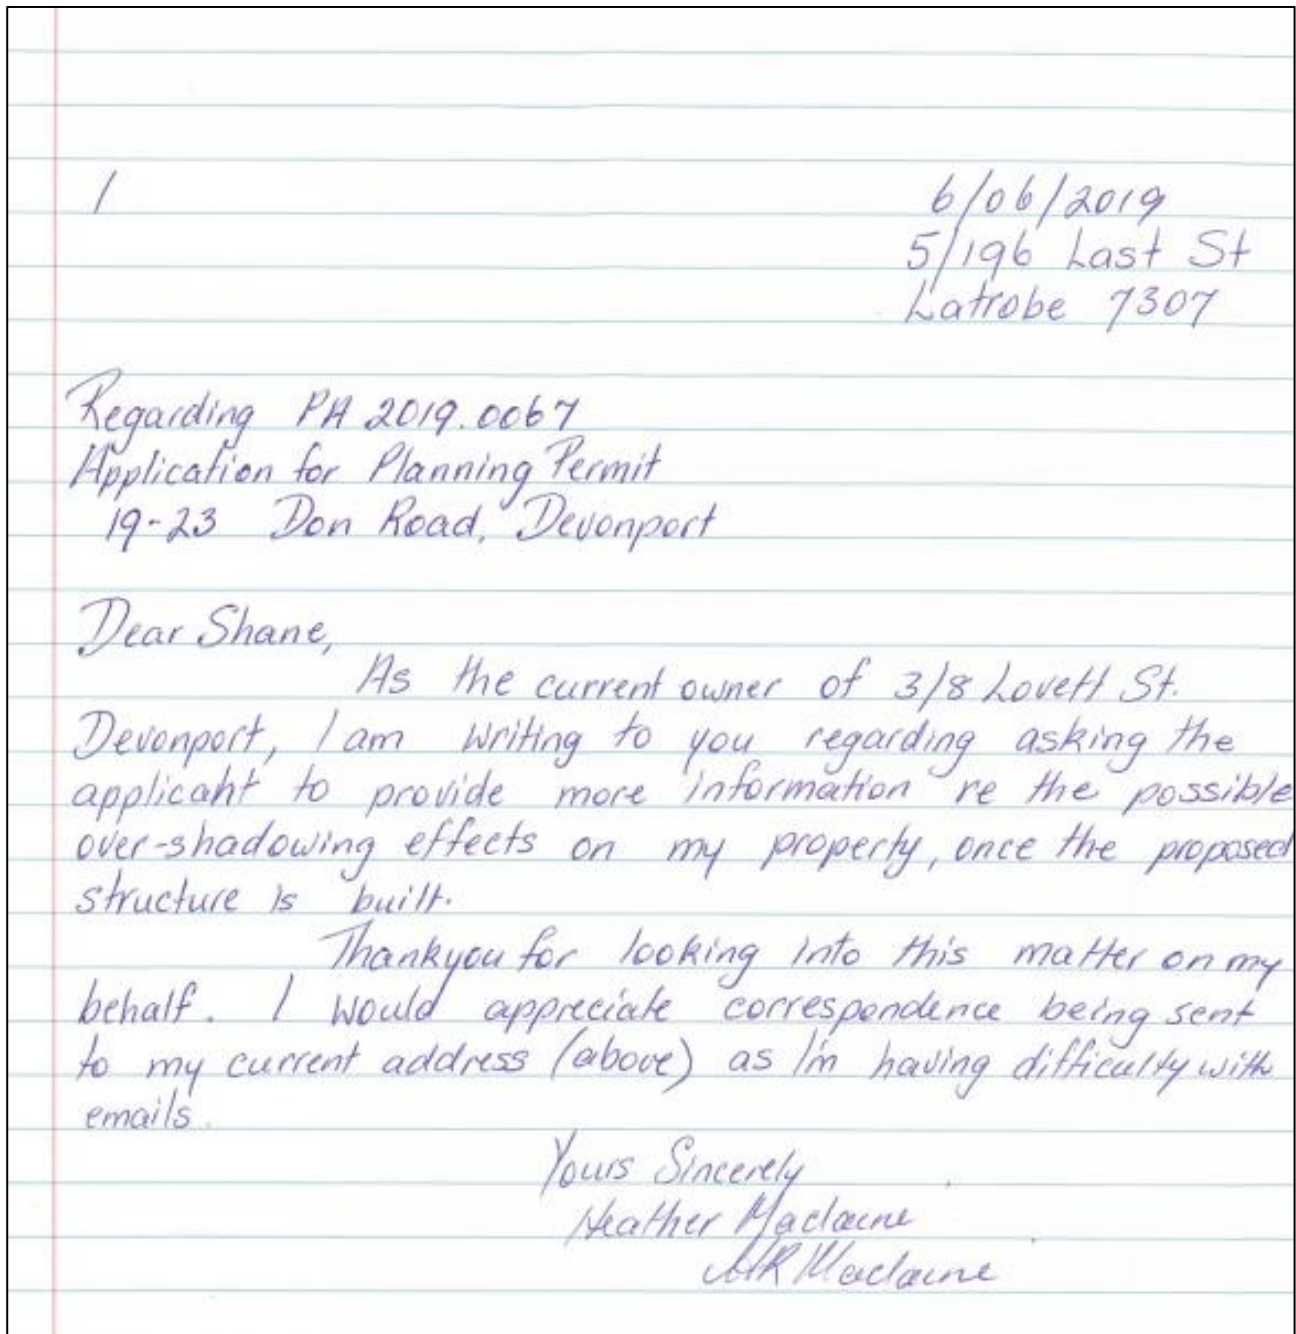 /
6/06/2019
5/196 Last St
Latrobe 7307
Regarding PA 2019.0067
Application for Planning Permit
19-23 Don Road, Devonport
Dear Shane,
As the current owner of 3/8 Lovett St.
Devonport, I am writing to you regarding asking the
applicant to provide more information re the possible
over-shadowing effects on my property, once the proposed
structure is built.
Thankyou for looking into this matter on my
behalf. I would appreciate correspondence being sent
to my current address (above) as I'm having difficulty with
emails.
Yours Sincerely
Heather Maclaine
HR Maclaine